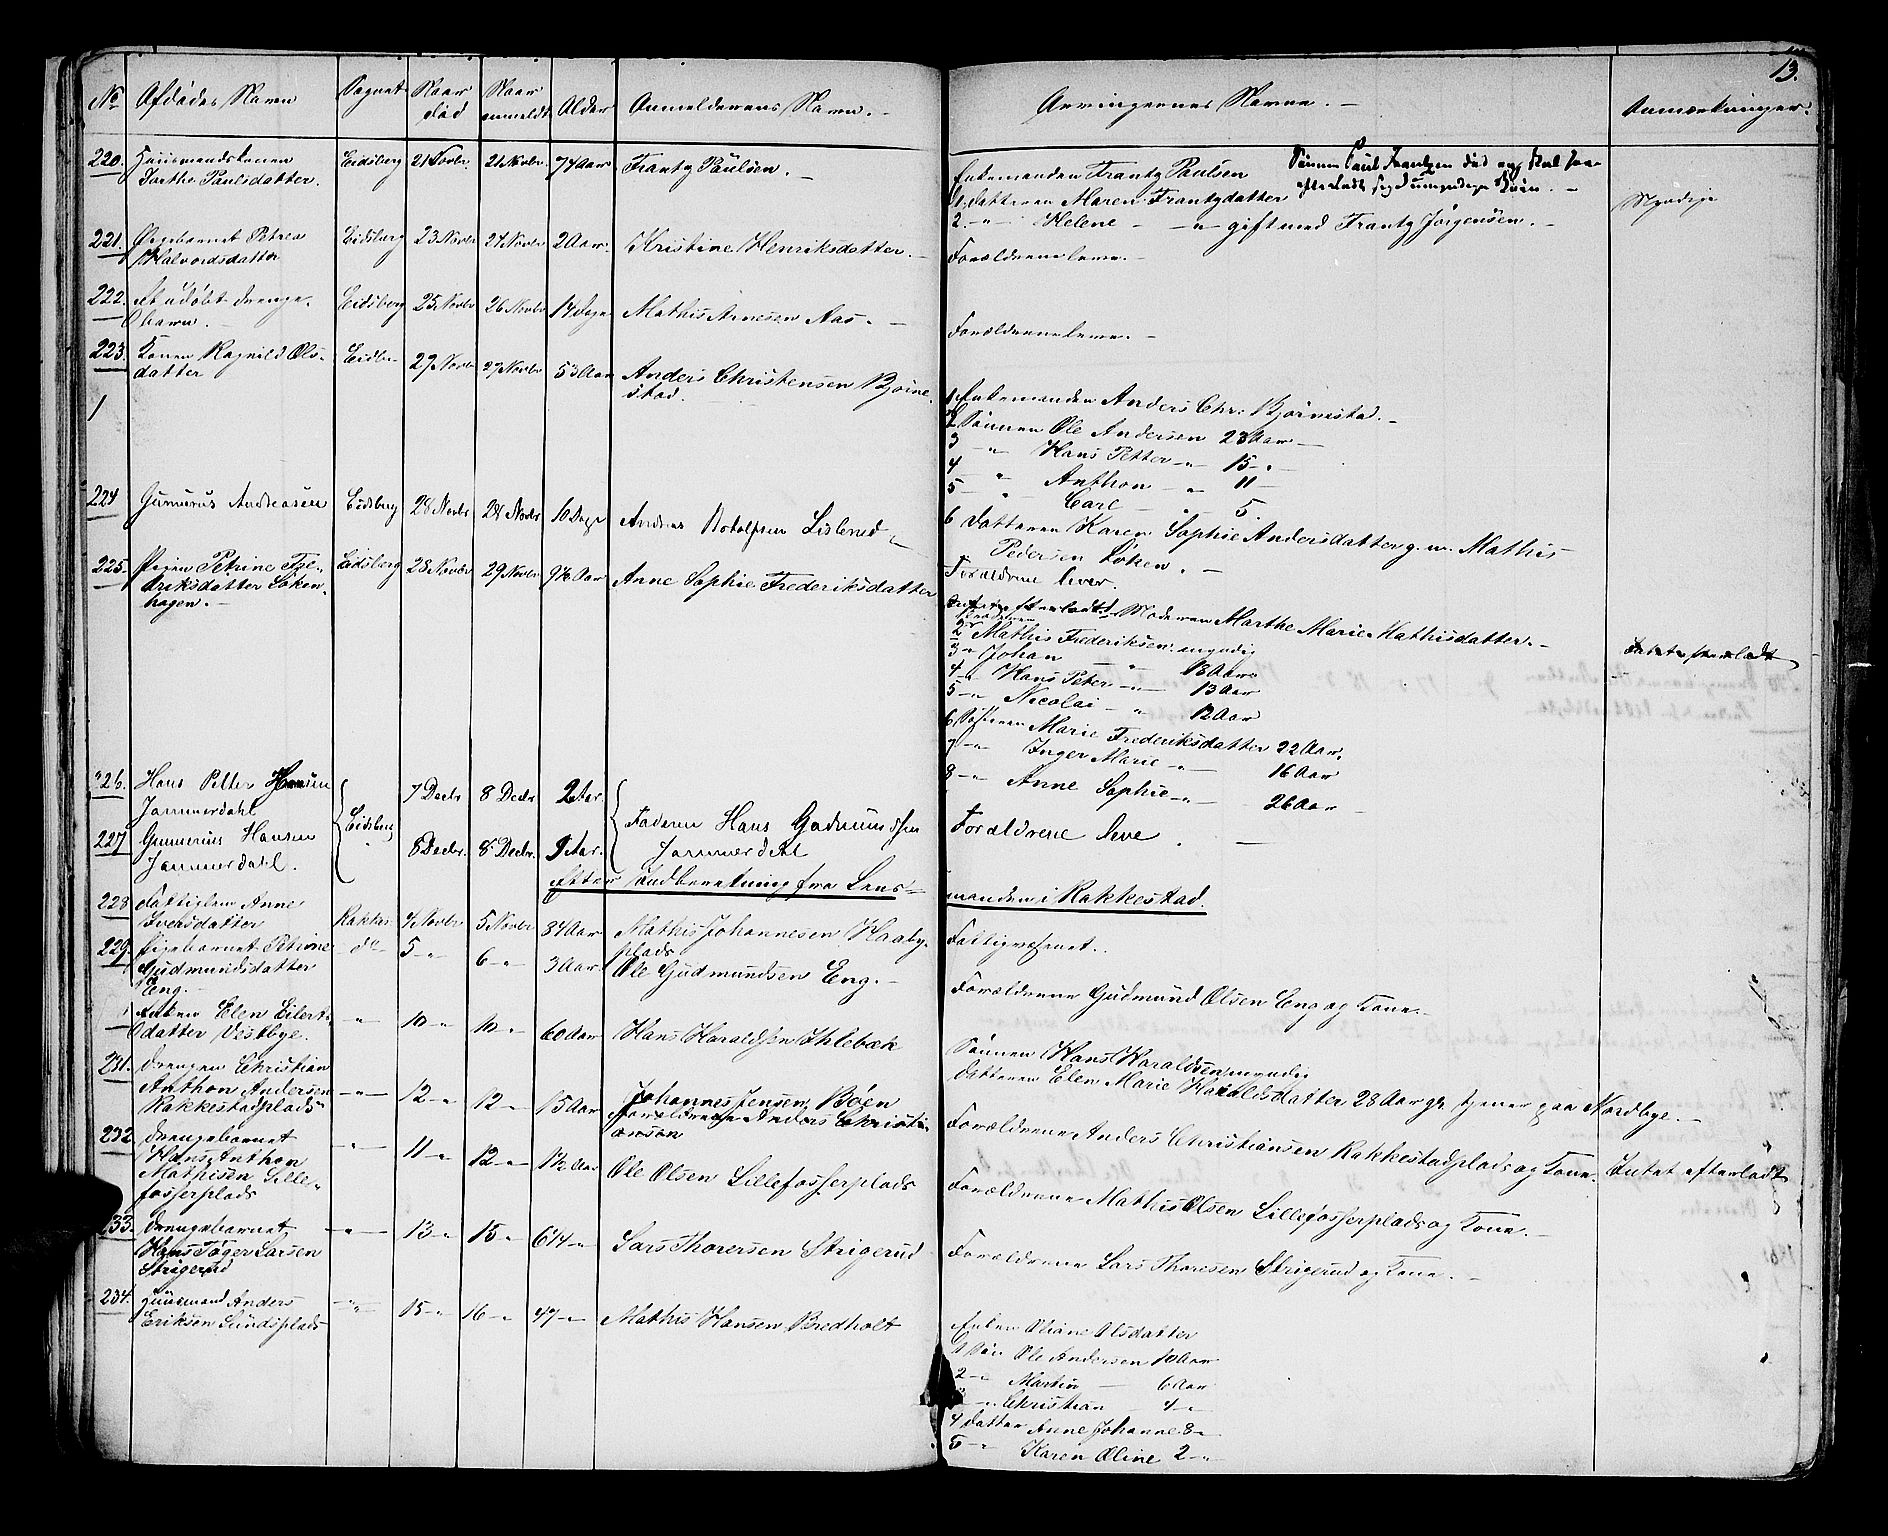 13.
No Afdødes Navn Sognet Naar død Naar anmeldt Alder Anmelderens Navn. – Arvingernes Navne. – Anmærkninger.
220. Huusmandskonen Eidsberg 21 Novbr. 21 Novbr. 74 Aar Frantz Paulsen. –
Dorthe Paulsdatter.
Enkemanden Frantz Paulsen
Sønnen Paul Frantzen død og skal have
efterladt sig umyndige Børn. –
1. Datteren Maren Frantzdatter
2. –"– Helene – " – gift med Frantz Jørgensen. – Myndige
221. Pigebarnet Petrea Eidsberg 23 Novbr 27 Novbr 2 Aar. Kristine Henriksdatter. – Forældrene leve. –
Halvordsdatter
222. Et udøbt Drenge- Eidsberg 25 Novbr 26 Novbr 14 Dage Mathis Arnesen Aas. – Forældrene leve. –
barn. –
223. Konen Ragnild Ols- Eidsbe 27 Novbr 27 Novbr 53 Aar Anders Christensen Bjørne-
datter stad.
1 Enkemanden Anders Chr: Bjørnestad. –
2 Sønnen Ole Andersen 23 Aar –
3 –"– Hans Petter –"– 15 –"–
4 " Anthon – " – 11 –
5 – " Carl – 5
6 Datteren Karen Sophie Andersdatter g. m. Mathis
Pedersen Løken. –
224 Gunnerus Andreasen Eidsberg 28 Novbr 28 Novbr 10 Dage Andreas Rodolfsen Lislerud – Forældrene lever.
225. Pigen Petrine Fre- Eidsberg 28 Novbr 29 Novbr 9½ Aar Anne Sophie Frederiksdatter
driksdatter Løken-
hagen. –
Moderen Marthe Marie Mathisdatter. –
2 Mathis Frederiksen myndig Intet efterladt
3 " Johan – " – 18 Aar
4 –" Hans Peter –"– 13 Aar
5 –" Nicolai – " – 12 Aar
6 Søsteren Marie Frederiksdatter 22 Aar.
7 –"– Inger Marie –"– 16 Aar
8 –"– Anne Sophie –"– 26 Aar –
226. Hans Petter Hansen Eidsberg 7 Decbr 8 Decbr 2 Aar. Faderen Hans Gudmundsen Forældrene leve. –
Jammerdahl Jammerdahl
227 Gunnerius Hansen 8 Decbr. 8 Decbr. 9 Aar.
Jammerdahl.
Efter Indberetning fra Lens- manden i Rakkestad.
228 Fattiglem Anne Rakkes. 4 Novbr 5 Novbr 84 Aar Mathis Johannesen Haaby- Fattigvæsenet.
Iversdatter plads
229. Pigebarnet Petrine do 5 –"– 6 –"– 3 Aar. Ole Gudmundsen Eng. – Forældrene Gudmund Olsen Eng og Kone. –
Gudmundsdatter
Eng. –
Enken Elen Eilerts- –"– 10 –"– 10 –"– 60 Aar Hans Haraldsen Ihlebæk Sønnen Hans Haraldsen, myndig
datter Vestbye. Datteren Elen Marie Haraldsdatter 28 Aar gl. tjener paa Nordbye. –
231. Drengen Christian –"– 12 –"– 12 –"– 15 Aar Johannes Jensen Bøen Forældrene Anders Christiansen Rakkestadplads og Kone. Intet efterladt
Anthon Andersen Forældrene Anders Christi-
Rakkestadplads ansen
232. Drengebarnet –"– 11 –"– 12 –"– 1½ Aar Ole Olsen Lillefosserplads Forældrene Mathis Olsen Lillefosserplads og Kone. –
Hans Anthon
Mathisen Lille-
fosserplads
233. Drengebarnet –"– 13 –"– 15 –"– 6 14 –"– Lars Thoresen Strigerud Forældrene Lars Thoresen Strigerud og Kone. –
Hans Tøger Larsen
Strigerud
234. Huusmand Anders –"– 15 –"– 16 –"– 47 –"– Mathis Hansen Bredholt Enken Oliane Olsdatter
Eriksen Sundsplads
1 Søn Ole Andersen 10 Aar
2 –" Martin – 6 Aar
–" Christian – 4 –"
4 Datter Anne Johanne 8 –"
5 –"– Karen Oline 2 –"–